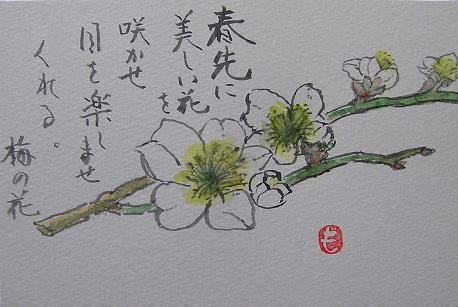 春先に
美しい花を
咲かせ
目を楽しませ
くれる。
梅の花